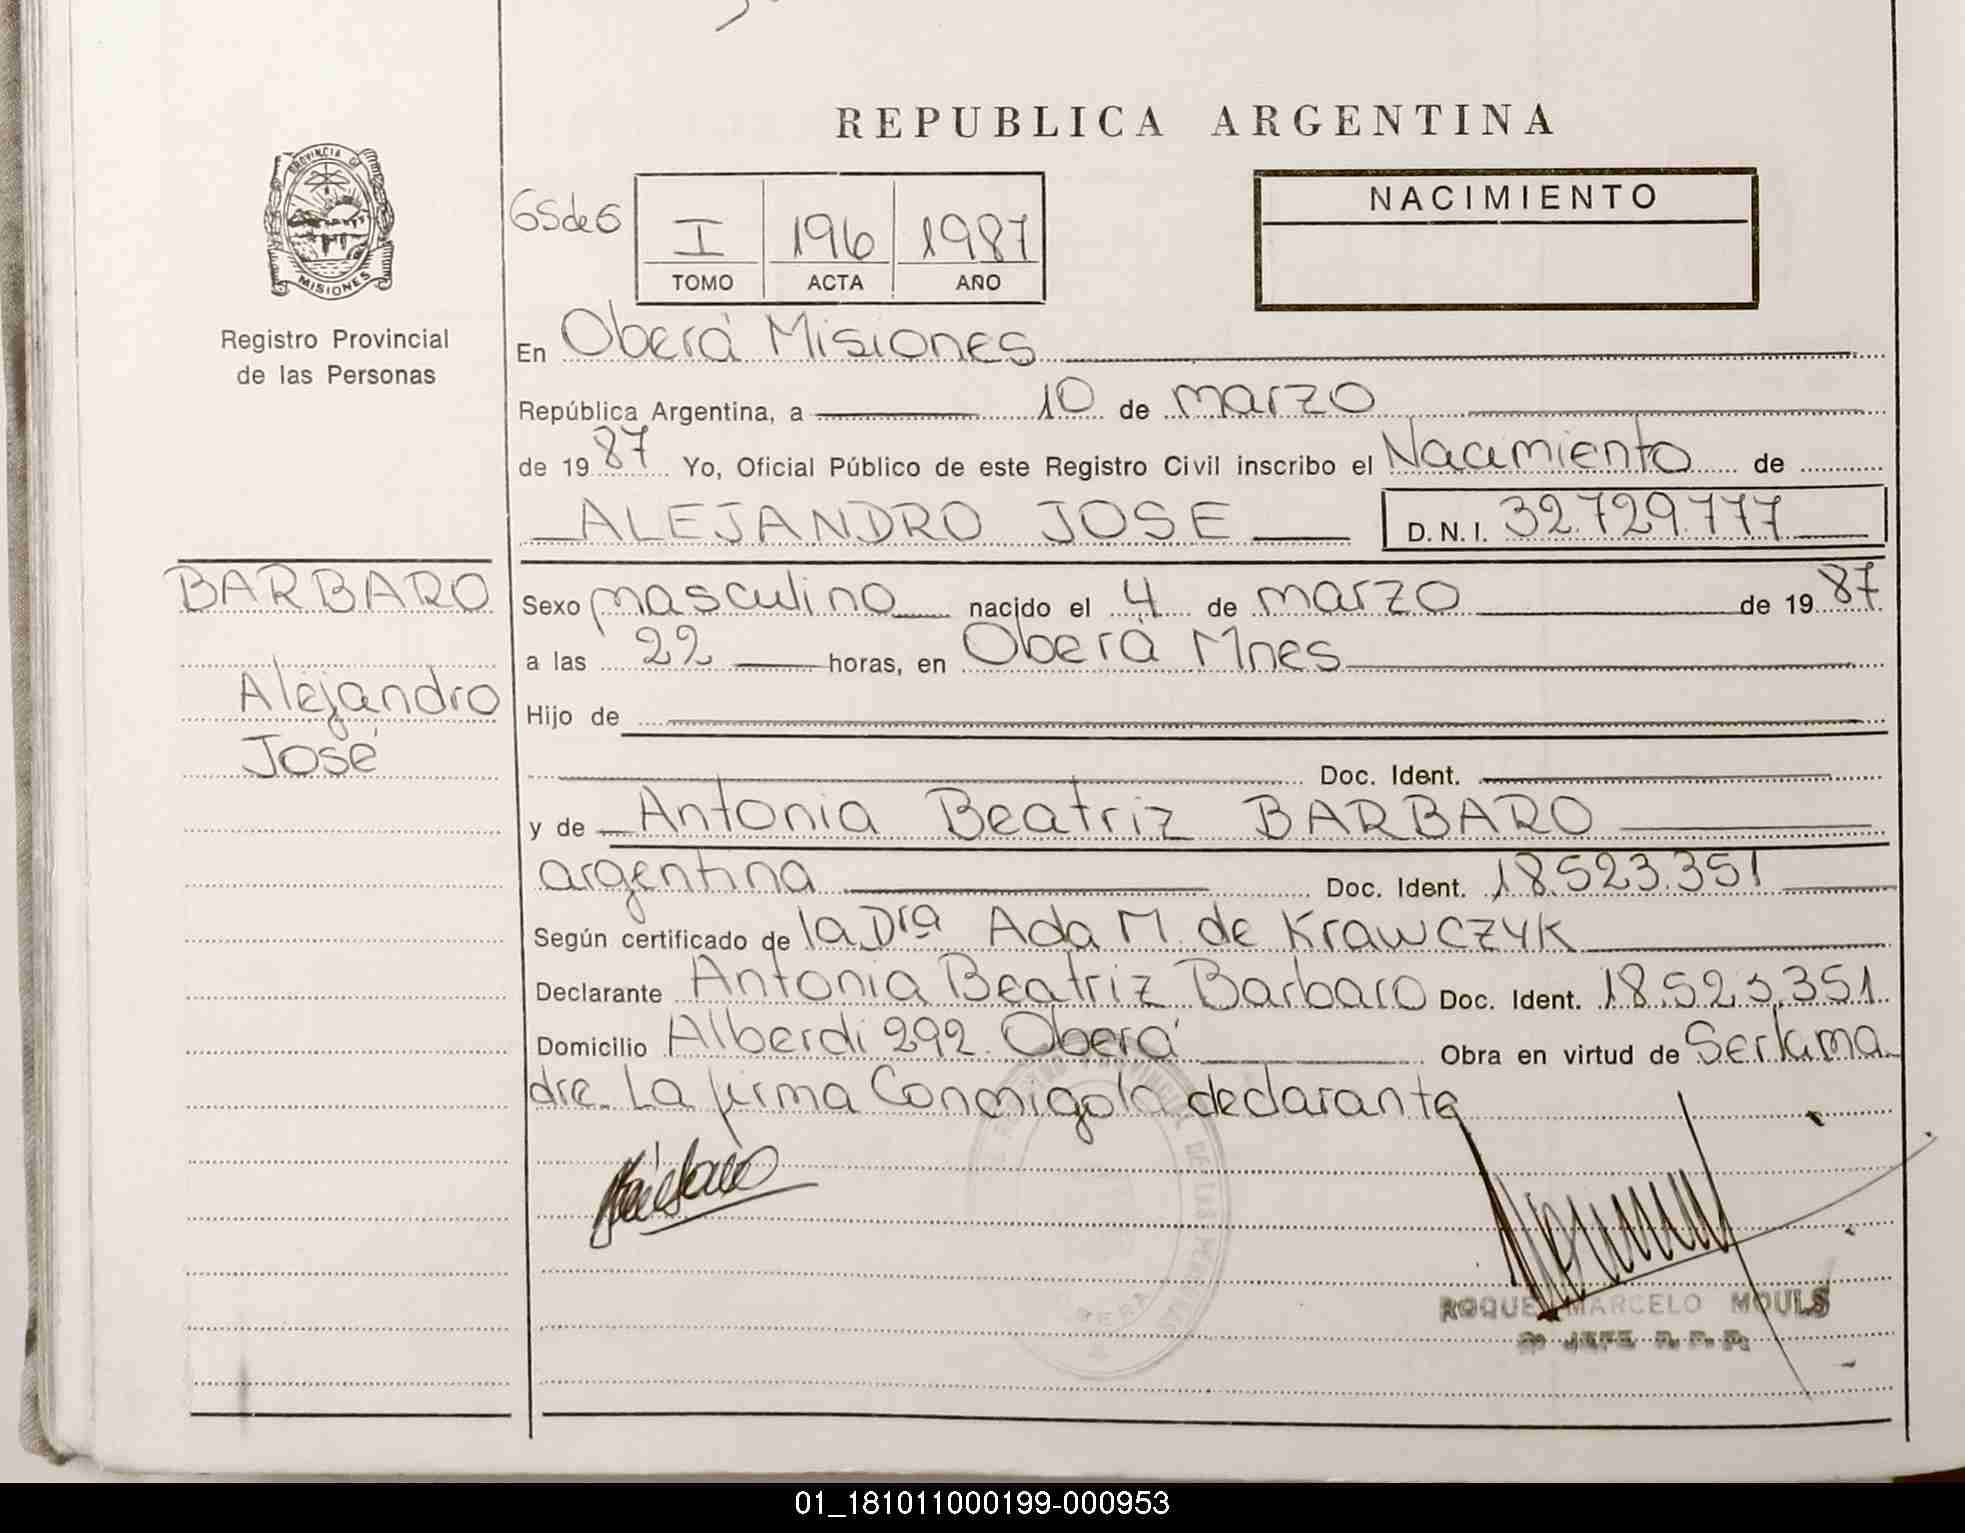 REPUBLICA ARGENTINA
PROVINCIA DE
MISIONES
Registro Provincial
de las Personas
65 de 6
I 196 1987
TOMO ACTA AÑO
NACIMIENTO
En Oberá Misiones
República Argentina, a 10 de marzo
de 1987 Yo, Oficial Público de este Registro Civil inscribo el Nacimiento de
ALEJANDRO JOSE D.N.I. 32.729.777
BARBARO
Alejandro
José
Sexo masculino nacido el 4 de marzo de 1987
a las 22 horas, en Oberá Mnes
Hijo de
Doc. Ident.
y de Antonia Beatriz BARBARO
argentina Doc. Ident. 18.523.351
Según certificado de la Dra Ada M. de Krawczyk
Declarante Antonia Beatriz Barbaro Doc. Ident. 18.523.351
Domicilio Alberdi 292 Oberá Obra en virtud de Ser la ma
dre. La firma Conmigo la declarante
ROQUE MARCELO MOULS
JEFE R. P. P.
01_181011000199-000953